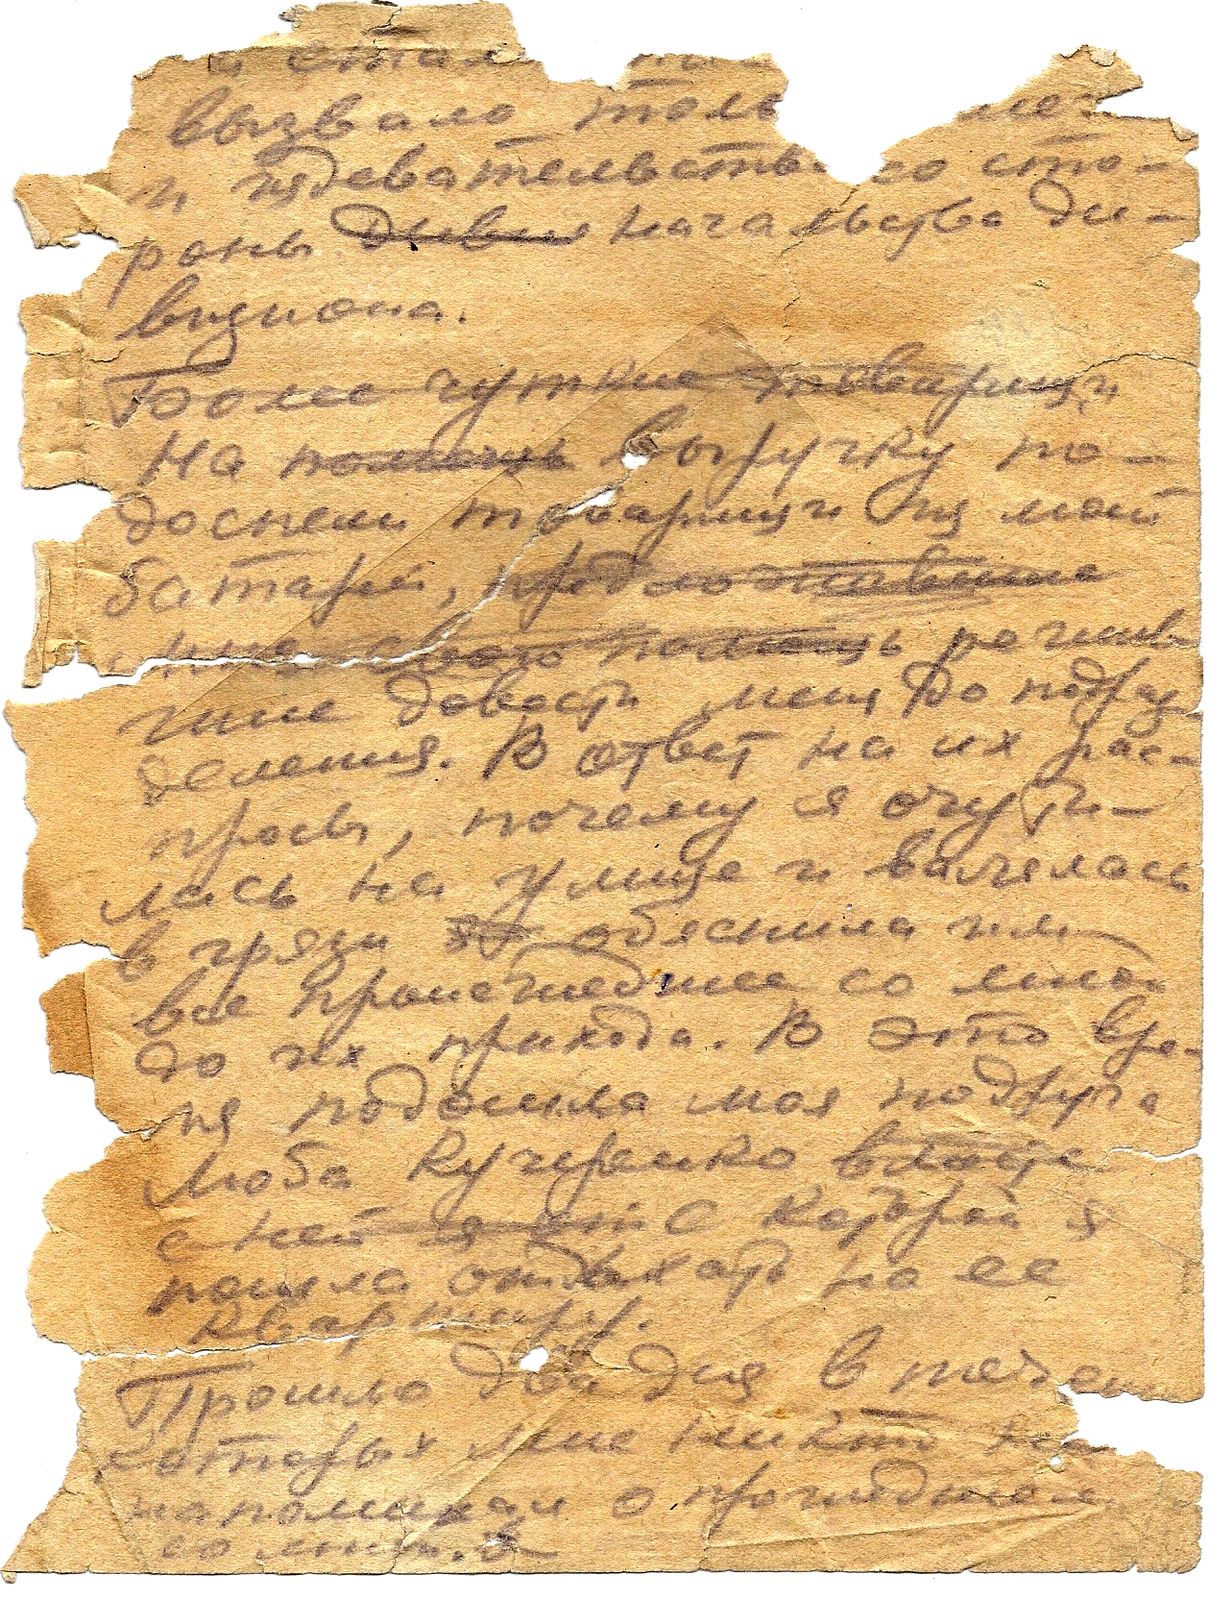 и стал
вызвало толь
и издевательств со сто-
роны Дивиз начальства ди-
визиона.
Более чуткие товарищи
На помощь выручку по-
доспели товарищи из моей
батареи, предложившие
мне свою помощь решив
шие довести меня до подраз
деления. В ответ на их рас-
просы, почему я очути-
лась на улице и валялась
в грязи я обяснила им
все происшедшее со мной
до их прихода. В это вре-
мя подошла моя подруга
Люба Кучеренко
с ней я с которой я
пошла отдыхать на ее
квартиру.
Прошло два дня в течен
которых мне никто не
напоминал о прошедшем
со мной. В